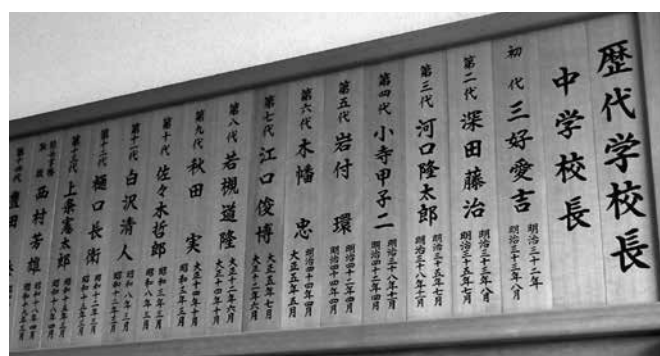 歴代学校長
中学校長
初代 三好愛吉 明治三十二年 明治三十三年八月
第二代 深田藤治 明治三十三年八月 明治三十五年七月
第三代 河口隆太郎 明治三十五年七月 明治三十八年十一月
第四代 小寺甲子二 明治三十八年十一月 明治四十二年四月
第五代 岩付環 明治四十二年四月 明治四十四年四月
第六代 木幡忠 明治四十四年四月 大正五年五月
第七代 江口俊博 大正五年七月 大正十二年六月
第八代 若槻道隆 大正十二年六月 大正十四年十月
第九代 秋田実 大正十四年十月 昭和三年三月
第十代 佐々木哲郎 昭和三年三月 昭和八年三月
第十一代 白沢清人 昭和八年三月 昭和十二年三月
第十二代 樋口長衛 昭和十二年三月 昭和十五年三月
第十三代 上条憲太郎 昭和十五年三月 昭和十八年四月
西村芳雄 昭和十八年四月
第十四代 豊田